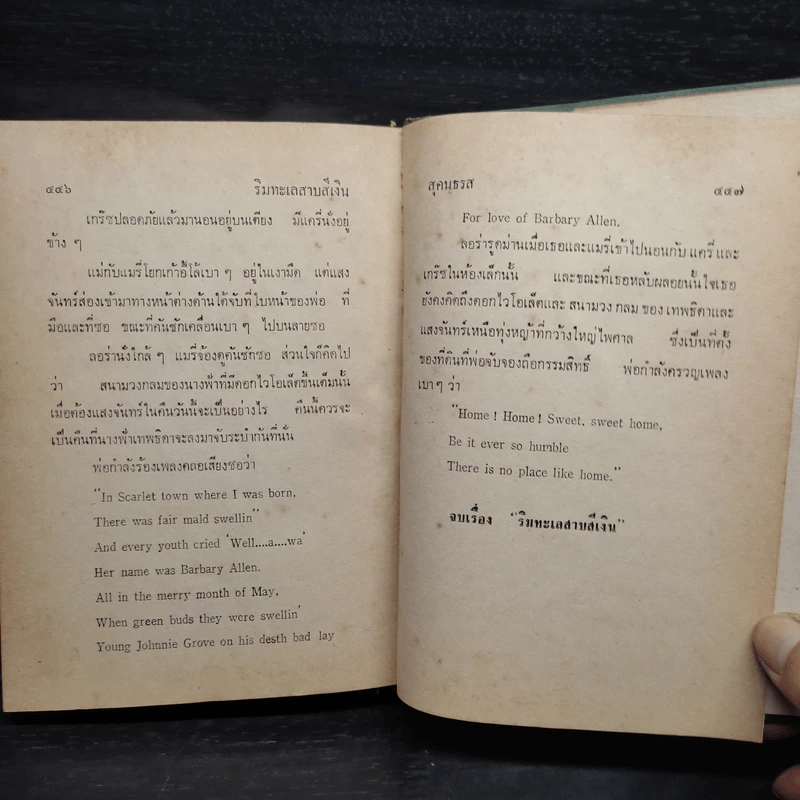 ๔๔๖ ริมทะเลสาบสีเงิน
เกร๊ซปลอดภัยแล้วมานอนอยู่บนเตียง มีแครี่นั่งอยู่
ข้าง ๆ
แม่กับแมรี่โยกเก้าอี้โล้เบา ๆ อยู่ในเงามืด แต่แสง
จันทร์ส่องเข้ามาทางหน้าต่างด้านใต้จับที่ใบหน้าของพ่อ ที่
มือและที่ซอ ขณะที่คันชักเคลื่อนเบา ๆ ไปบนสายซอ
ลอร่านั่งใกล้ ๆ แมรี่จ้องดูคันชักซอ ส่วนใจก็คิดไป
ว่า สนามวงกลมของนางฟ้าที่มีดอกไวโอเล็ตขึ้นเต็มนั้น
เมื่อต้องแสงจันทร์ในคืนวันนี้จะเป็นอย่างไร คืนนี้ควรจะ
เป็นคืนที่นางฟ้าเทพธิดาจะลงมาจับระบำกันที่นั่น
พ่อกำลังร้องเพลงคลอเสียงซอว่า
"In Scarlet town where I was born,
There was fair maid swellin"
And every youth cried 'Well....a....wa'
Her name was Barbary Allen.
All in the merry month of May,
When green buds they were swellin'
Young Johnnie Grove on his desth bad lay
สุคนธรส ๔๔๗
For love of Barbary Allen.
ลอร่ารูดม่านเมื่อเธอและแมรี่เข้าไปนอนกับ แครี่ และ
เกร๊ซในห้องเล็กนั้น และขณะที่เธอหลับผลอยนั้นใจเธอ
ยังคงคิดถึงดอกไวโอเล็ตและ สนามวง กลม ของ เทพธิดาและ
แสงจันทร์เหนือทุ่งหญ้าที่กว้างใหญ่ไพศาล ซึ่งเป็นที่ตั้ง
ของที่ดินที่พ่อจับจองถือกรรมสิทธิ์ พ่อกำลังครวญเพลง
เบา ๆ ว่า
"Home ! Home ! Sweet, sweet home,
Be it ever so humble
There is no place like home."
จบเรื่อง "ริมทะเลสาบสีเงิน"